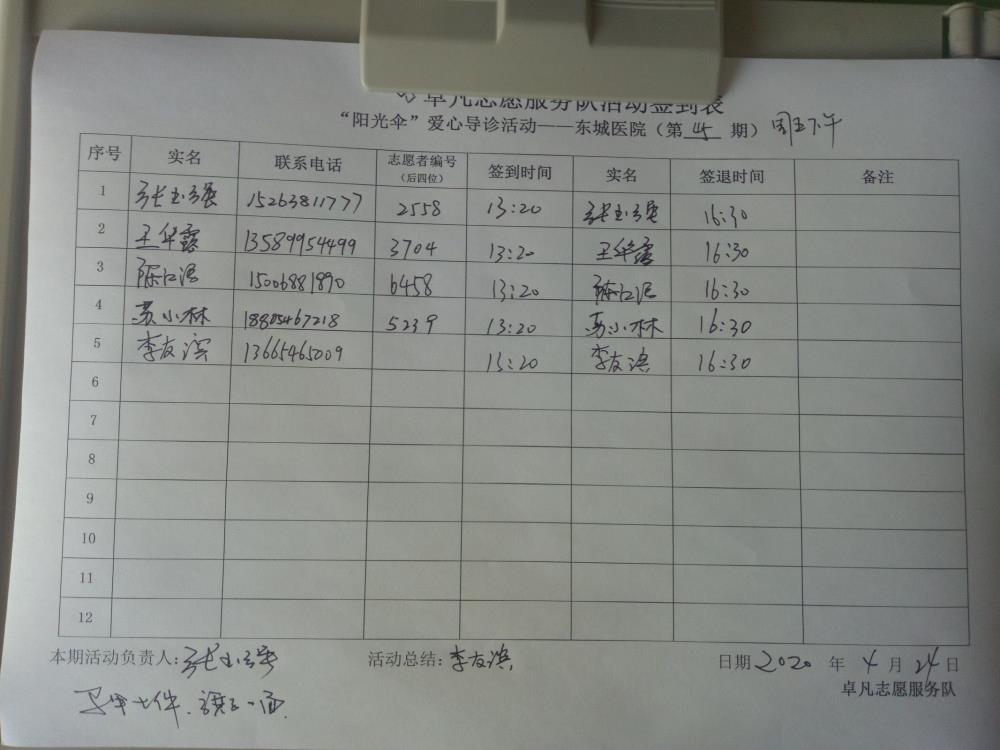 卓凡志愿服务队活动签到表
“阳光伞”爱心导诊活动——东城医院（第 45 期） 周五下午
序号 实名 联系电话 志愿者编号（后四位） 签到时间 实名 签退时间 备注
1 张玉强 15263811777 2558 13:20 张玉强 16:30
2 王华露 13589954499 3704 13:20 王华露 16:30
3 陈江浩 15006881890 6458 13:20 陈江浩 16:30
4 苏小林 18805467218 5239 13:20 苏小林 16:30
5 李友滨 13665465009 13:20 李友滨 16:30
6
7
8
9
10
11
12
本期活动负责人：张玉强 活动总结：李友滨 日期 2020 年 4 月 24 日
卓凡志愿服务队
马甲七件、旗子一面.